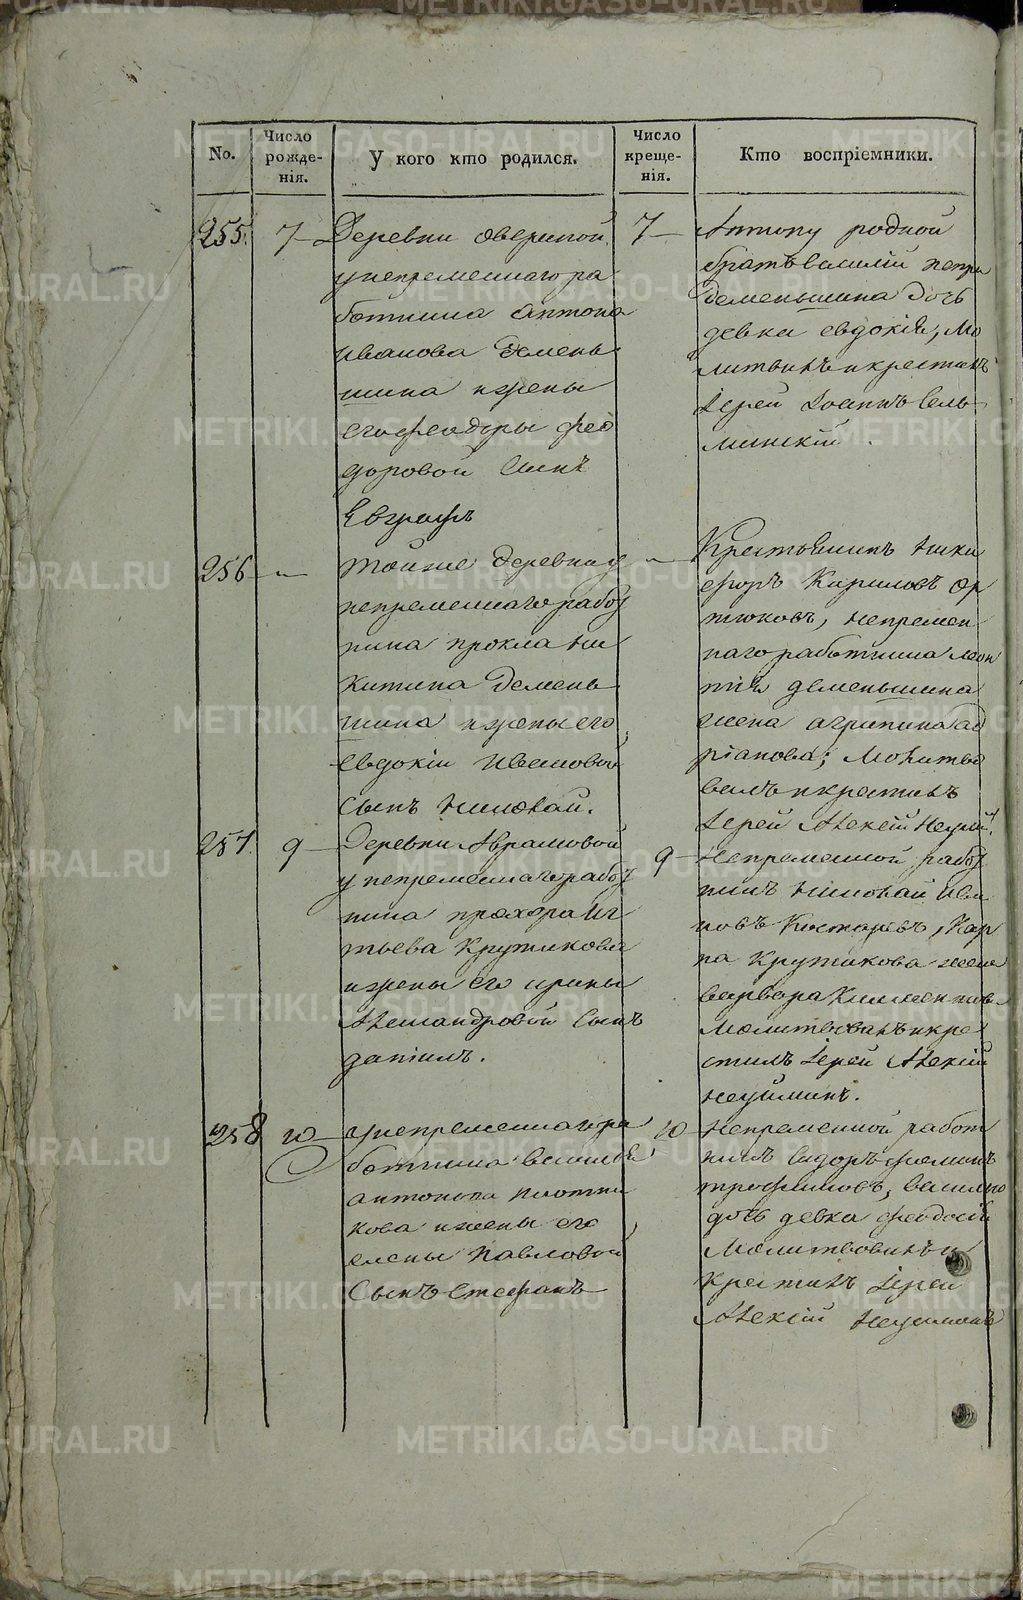 No.
Число рожденія.
У кого кто родился.
Число крещенія.
Кто воспріемники.
255.
7
Деревни Овериной
у непременнаго ра
ботника Антона
Иванова Демень
шина и жены
его Феодоры Фео
доровой Сынъ
Евграфъ
7
Антону родной
братъ Василий
Деменьшина дочь
девка Евдокія, Мо
литвилъ и крестилъ
Іерей Іоаннъ Сель
менскій
256
"
Тойже деревни у
непременнаго работ
ника Прокла Ни
китина Демень
шина и жены его
Евдокіи Ивановой
Сынъ Николай.
"
Крестьянинъ Ники
форъ Кириловъ Ор
тюковъ, непремен
наго работника Леон
тія Деменьшина
жена Агрипина Ад
ріанова; Молитво
валъ и крестилъ
Іерей Алексій Неуйм.
257
9
Деревни Абрамовой
у непременнаго работ
ника Прохора Иг
натьева Крутикова
и жены его Ирины
Александровой Сынъ
Даніилъ.
9
Непременной работ
никъ Николай Ива
новъ Костаревъ, Кар
па Крутикова жена
Варвара
Молитвовалъ и кре
стилъ Іерей Алексій
Неуйминъ.
258
10
У непременнаго ра
ботника Василья
Антонова Плотни
кова и жены его
Елены Павловой
Сынъ Стефанъ
10
Непременной работ
никъ Сидоръ
Трофимовъ,
дочь девка Феодосія
Молитвовилъ и
крестилъ Іерей
Алексій Неуйминъ
METRIKI.GASO-URAL.RU